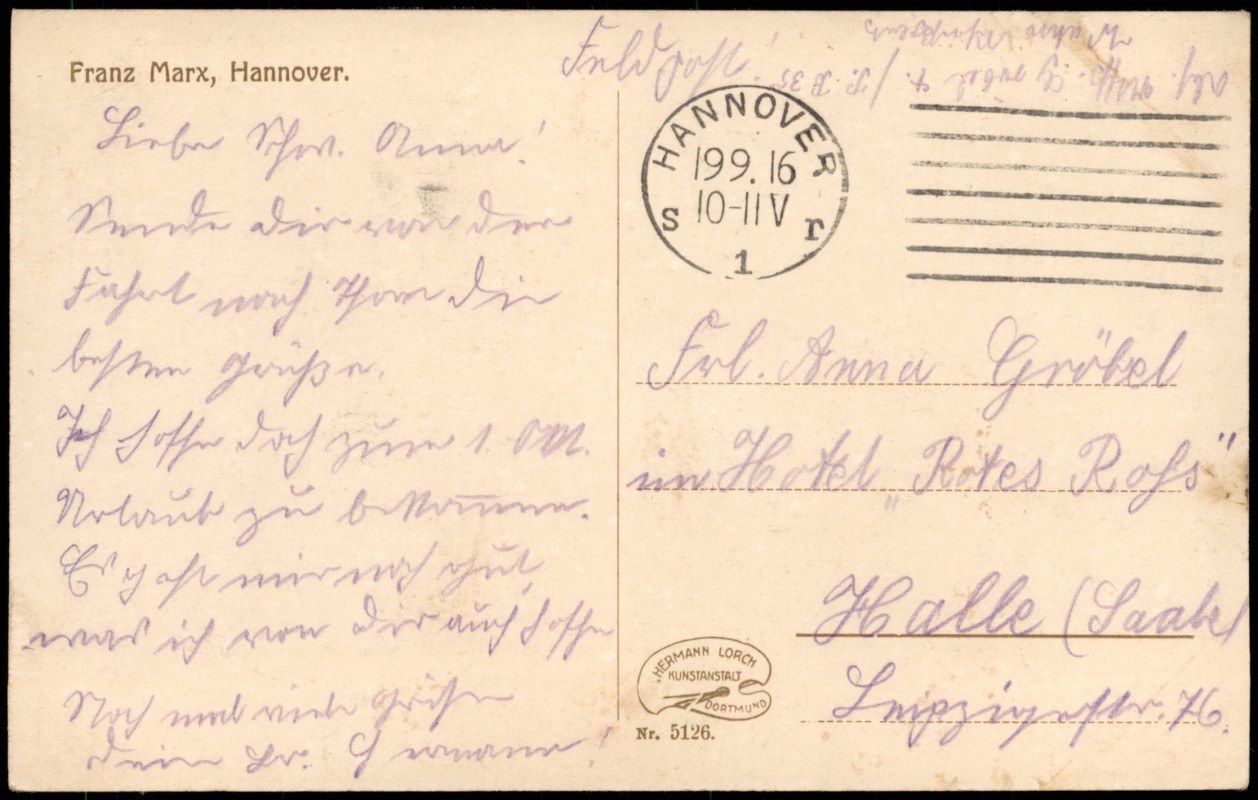 Franz Marx, Hannover.
Liebe Schw. Anna!
Sende Dir von der
Fahrt nach Thorn die
besten Grüße.
Ich hoffe doch zum 1. Okt.
Urlaub zu bekommen.
Es geht mir noch gut,
was ich von Dir auch hoffe
Noch mal viele Grüße
Dein Br. Hermann!
Feldpost!
Abs. Gröbel
HANNOVER
19 9. 16
10-11 V
S 1 r
Frl. Anna Gröbel
im Hotel „Rotes Roß“
Halle (Saale)
Leipzigerstr. 76.
HERMANN LORCH
KUNSTANSTALT
DORTMUND
Nr. 5126.